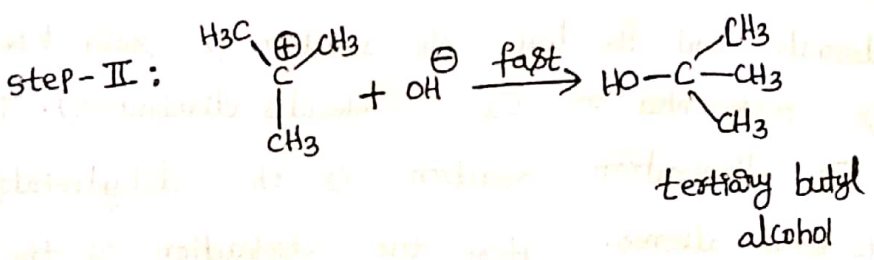 step-II: H3C ⊕ CH3 C CH3 + OH ⊖ fast HO-C-CH3 CH3 CH3
tertiary butyl
alcohol